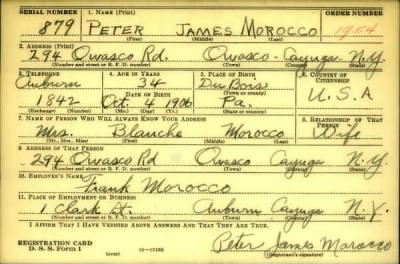 SERIAL NUMBER 1. NAME (Print) ORDER NUMBER
879 PETER JAMES MOROCCO 1954
(First) (Middle) (Last)
2. ADDRESS (Print)
294 Owasco Rd. Owasco - Cayuga - N.Y.
(Number and street or R. F. D. number) (Town) (County) (State)
3. TELEPHONE 4. AGE IN YEARS 5. PLACE OF BIRTH 6. COUNTRY OF CITIZENSHIP
Auburn 34 DuBois
DATE OF BIRTH (Town or county)
1842 Oct. 4 1906 Pa. U.S.A
(Exchange) (Number) (Mo.) (Day) (Yr.) (State or country)
7. NAME OF PERSON WHO WILL ALWAYS KNOW YOUR ADDRESS 8. RELATIONSHIP OF THAT PERSON
Mrs. Blanche Morocco Wife
(Mr., Mrs., Miss) (First) (Middle) (Last)
9. ADDRESS OF THAT PERSON
294 Owasco Rd Owasco Cayuga N.Y.
(Number and street or R. F. D. number) (Town) (County) (State)
10. EMPLOYER'S NAME
Frank Morocco
11. PLACE OF EMPLOYMENT OR BUSINESS
1 Clark St. Auburn Cayuga N.Y.
(Number and street or R. F. D. number) (Town) (County) (State)
I AFFIRM THAT I HAVE VERIFIED ABOVE ANSWERS AND THAT THEY ARE TRUE.
REGISTRATION CARD
D. S. S. Form 1 (over) 16—17105 Peter James Morocco
(Registrant's signature)